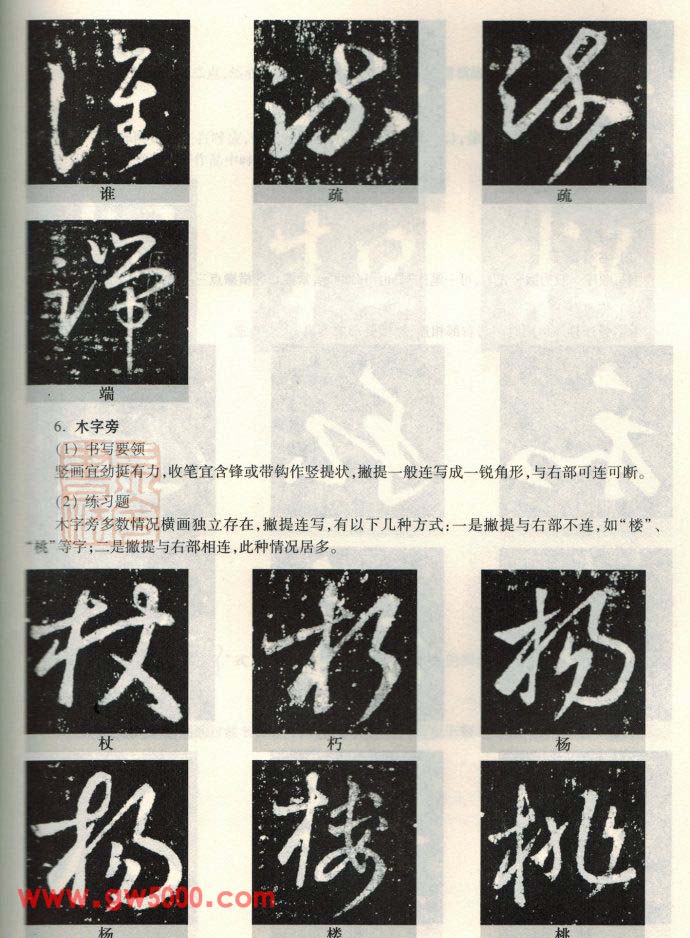 谁 疏 疏
端
6. 木字旁
(1) 书写要领
竖画宜劲挺有力，收笔宜含锋或带钩作竖提状，撇提一般连写成一锐角形，与右部可连可断。
(2) 练习题
木字旁多数情况横画独立存在，撇提连写，有以下几种方式：一是撇提与右部不连，如“楼”、
“桃”等字；二是撇提与右部相连，此种情况居多。
杖 朽 杨
www.gw5000.com
杨 楼 桃